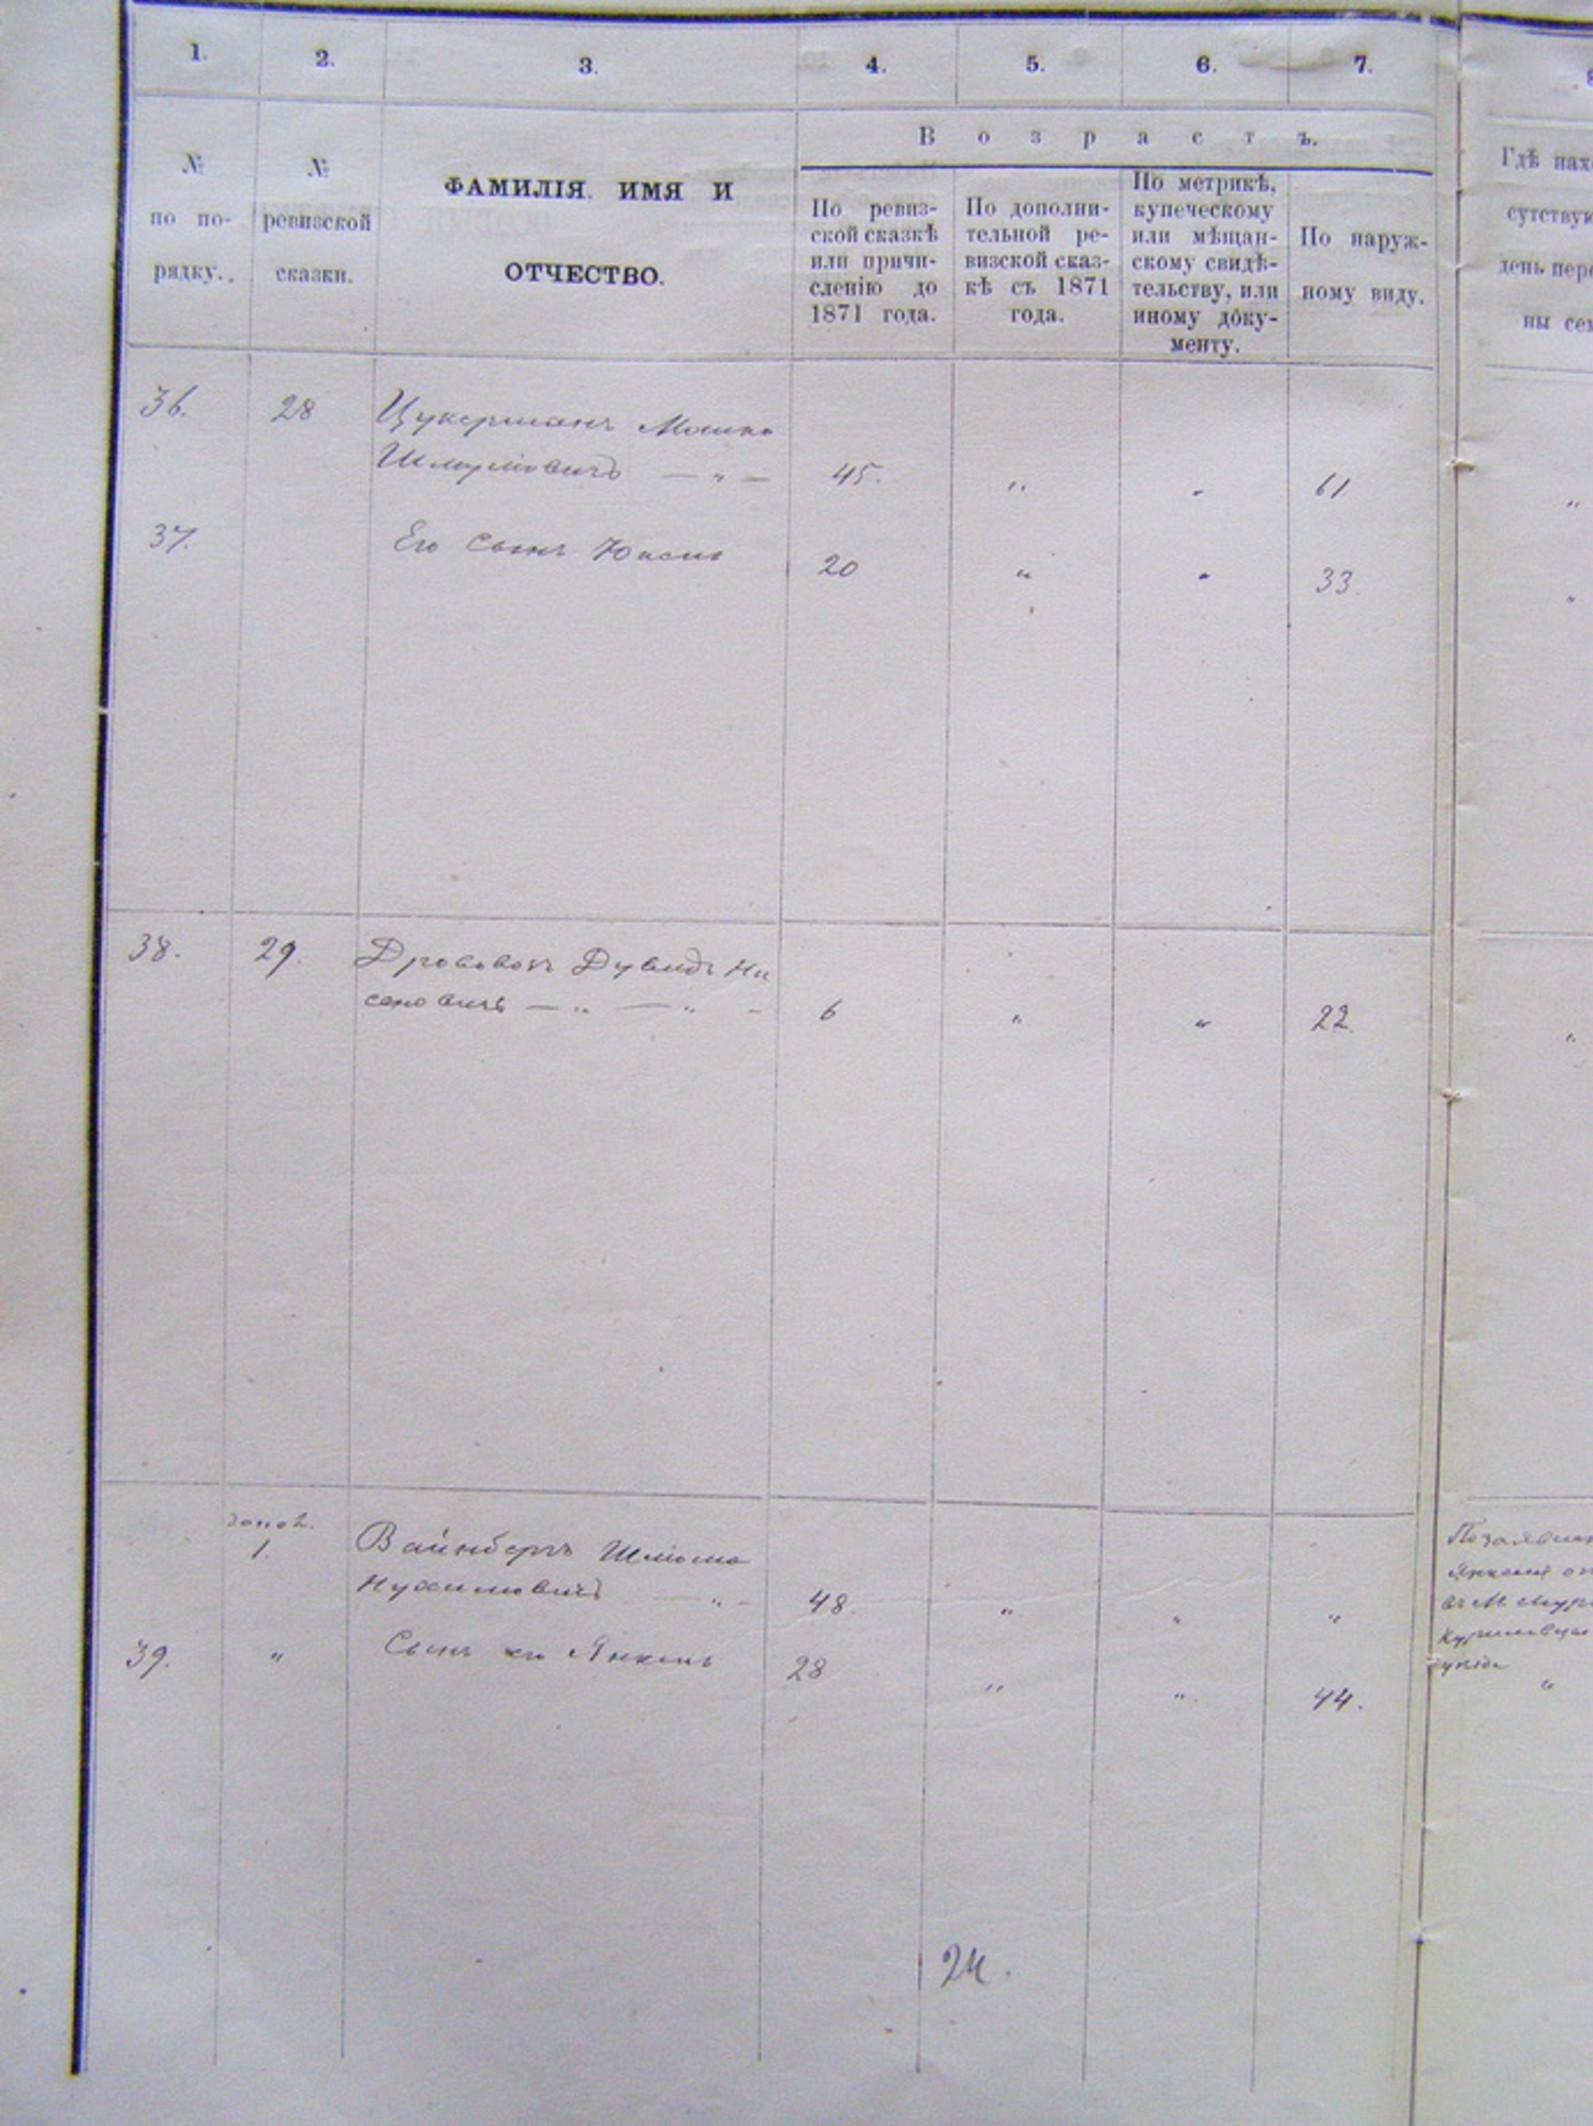 1. 2. 3. 4. 5. 6. 7.
№ по по-
рядку.
№ ревизской
сказки.
ФАМИЛІЯ, ИМЯ И
ОТЧЕСТВО.
Возрастъ.
По ревиз-
ской сказкѣ
или причи-
сленію до
1871 года.
По дополни-
тельной ре-
визской сказ-
кѣ съ 1871
года.
По метрикѣ,
купеческому
или мѣщан-
скому свидѣ-
тельству, или
иному доку-
менту.
По наруж-
ному виду.
Гдѣ
день
36. 28 Цукерманъ Мошко
Шмулiовичъ — „ — 45. „ „ 61
37. Его Сынъ 20 „ „ 33.
38. 29. Дрововозъ Дувидъ Ни
сеновичъ — „ — „ - 6 „ „ 22.
1. Вайнберъ Шлiома
Нухимовичъ — „ - 48. „ „ „
39. „ Сынъ его Янкель 28 „ „ 44.
24.